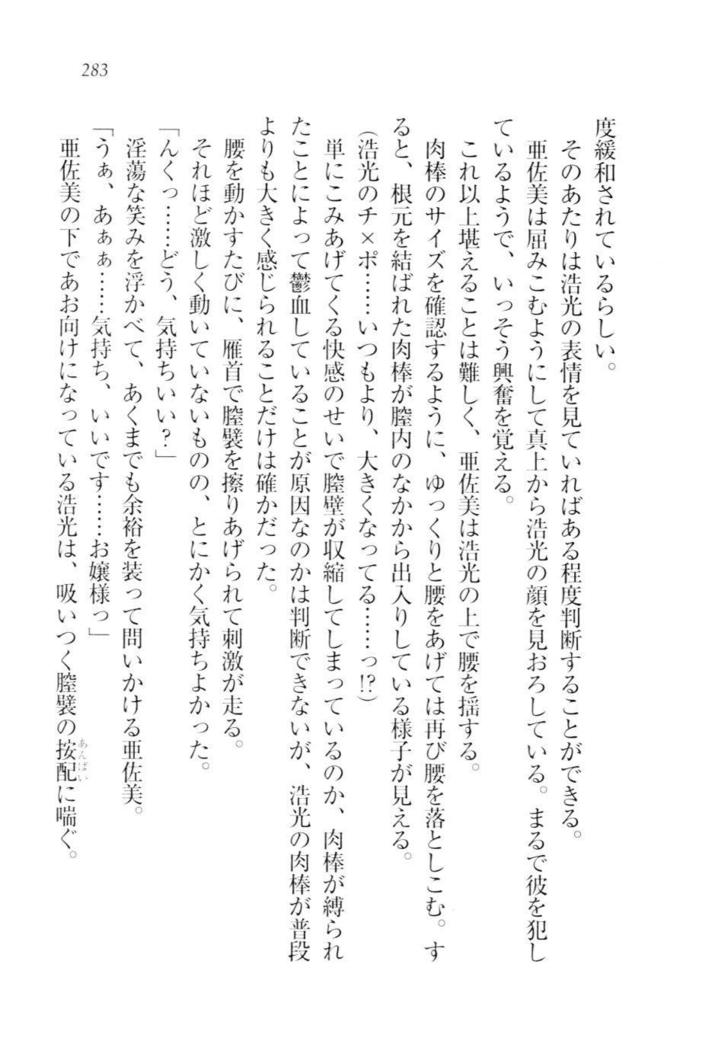 283
度緩和されているらしい。
そのあたりは浩光の表情を見ていればある程度判断することができる。
亜佐美は屈みこむようにして真上から浩光の顔を見おろしている。まるで彼を犯し
ているようで、いっそう興奮を覚える。
これ以上堪えることは難しく、亜佐美は浩光の上で腰を揺する。
肉棒のサイズを確認するように、ゆっくりと腰をあげては再び腰を落としこむ。す
ると、根元を結ばれた肉棒が膣内のなかから出入りしている様子が見える。
（浩光のチ×ポ……いつもより、大きくなってる……っ!?）
単にこみあげてくる快感のせいで膣壁が収縮してしまっているのか、肉棒が縛られ
たことによって鬱血していることが原因なのかは判断できないが、浩光の肉棒が普段
よりも大きく感じられることだけは確かだった。
腰を動かすたびに、雁首で膣襞を擦りあげられて刺激が走る。
それほど激しく動いていないものの、とにかく気持ちよかった。
「んくっ……どう、気持ちいい？」
淫蕩な笑みを浮かべて、あくまでも余裕を装って問いかける亜佐美。
「うぁ、あぁぁ……気持ち、いいです……お嬢様っ」
亜佐美の下であお向けになっている浩光は、吸いつく膣襞の按配あんばいに喘ぐ。